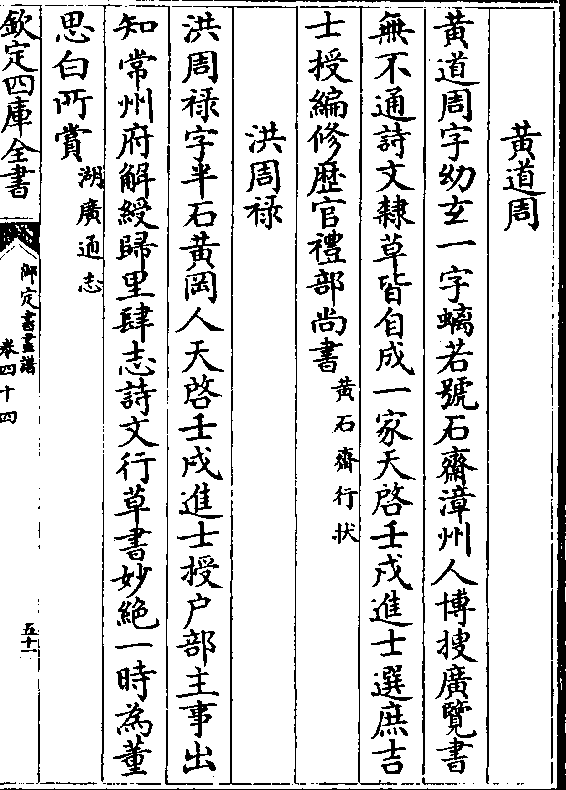 黄道周
黄道周字幼玄一字螭若號石齋漳州人博搜廣覽書
無不通詩文隸草皆自成一家天啓壬戌進士選庶吉
士授編修歴官禮部尚書黄石齋行状
洪周禄
洪周禄字半石黄岡人天啓壬戌進士授户部主事出
知常州府解綬歸里肆志詩文行草書妙絶一時為董
思白所賞湖廣通志
欽定四庫全書
御定書畫譜
卷四十四
五十一